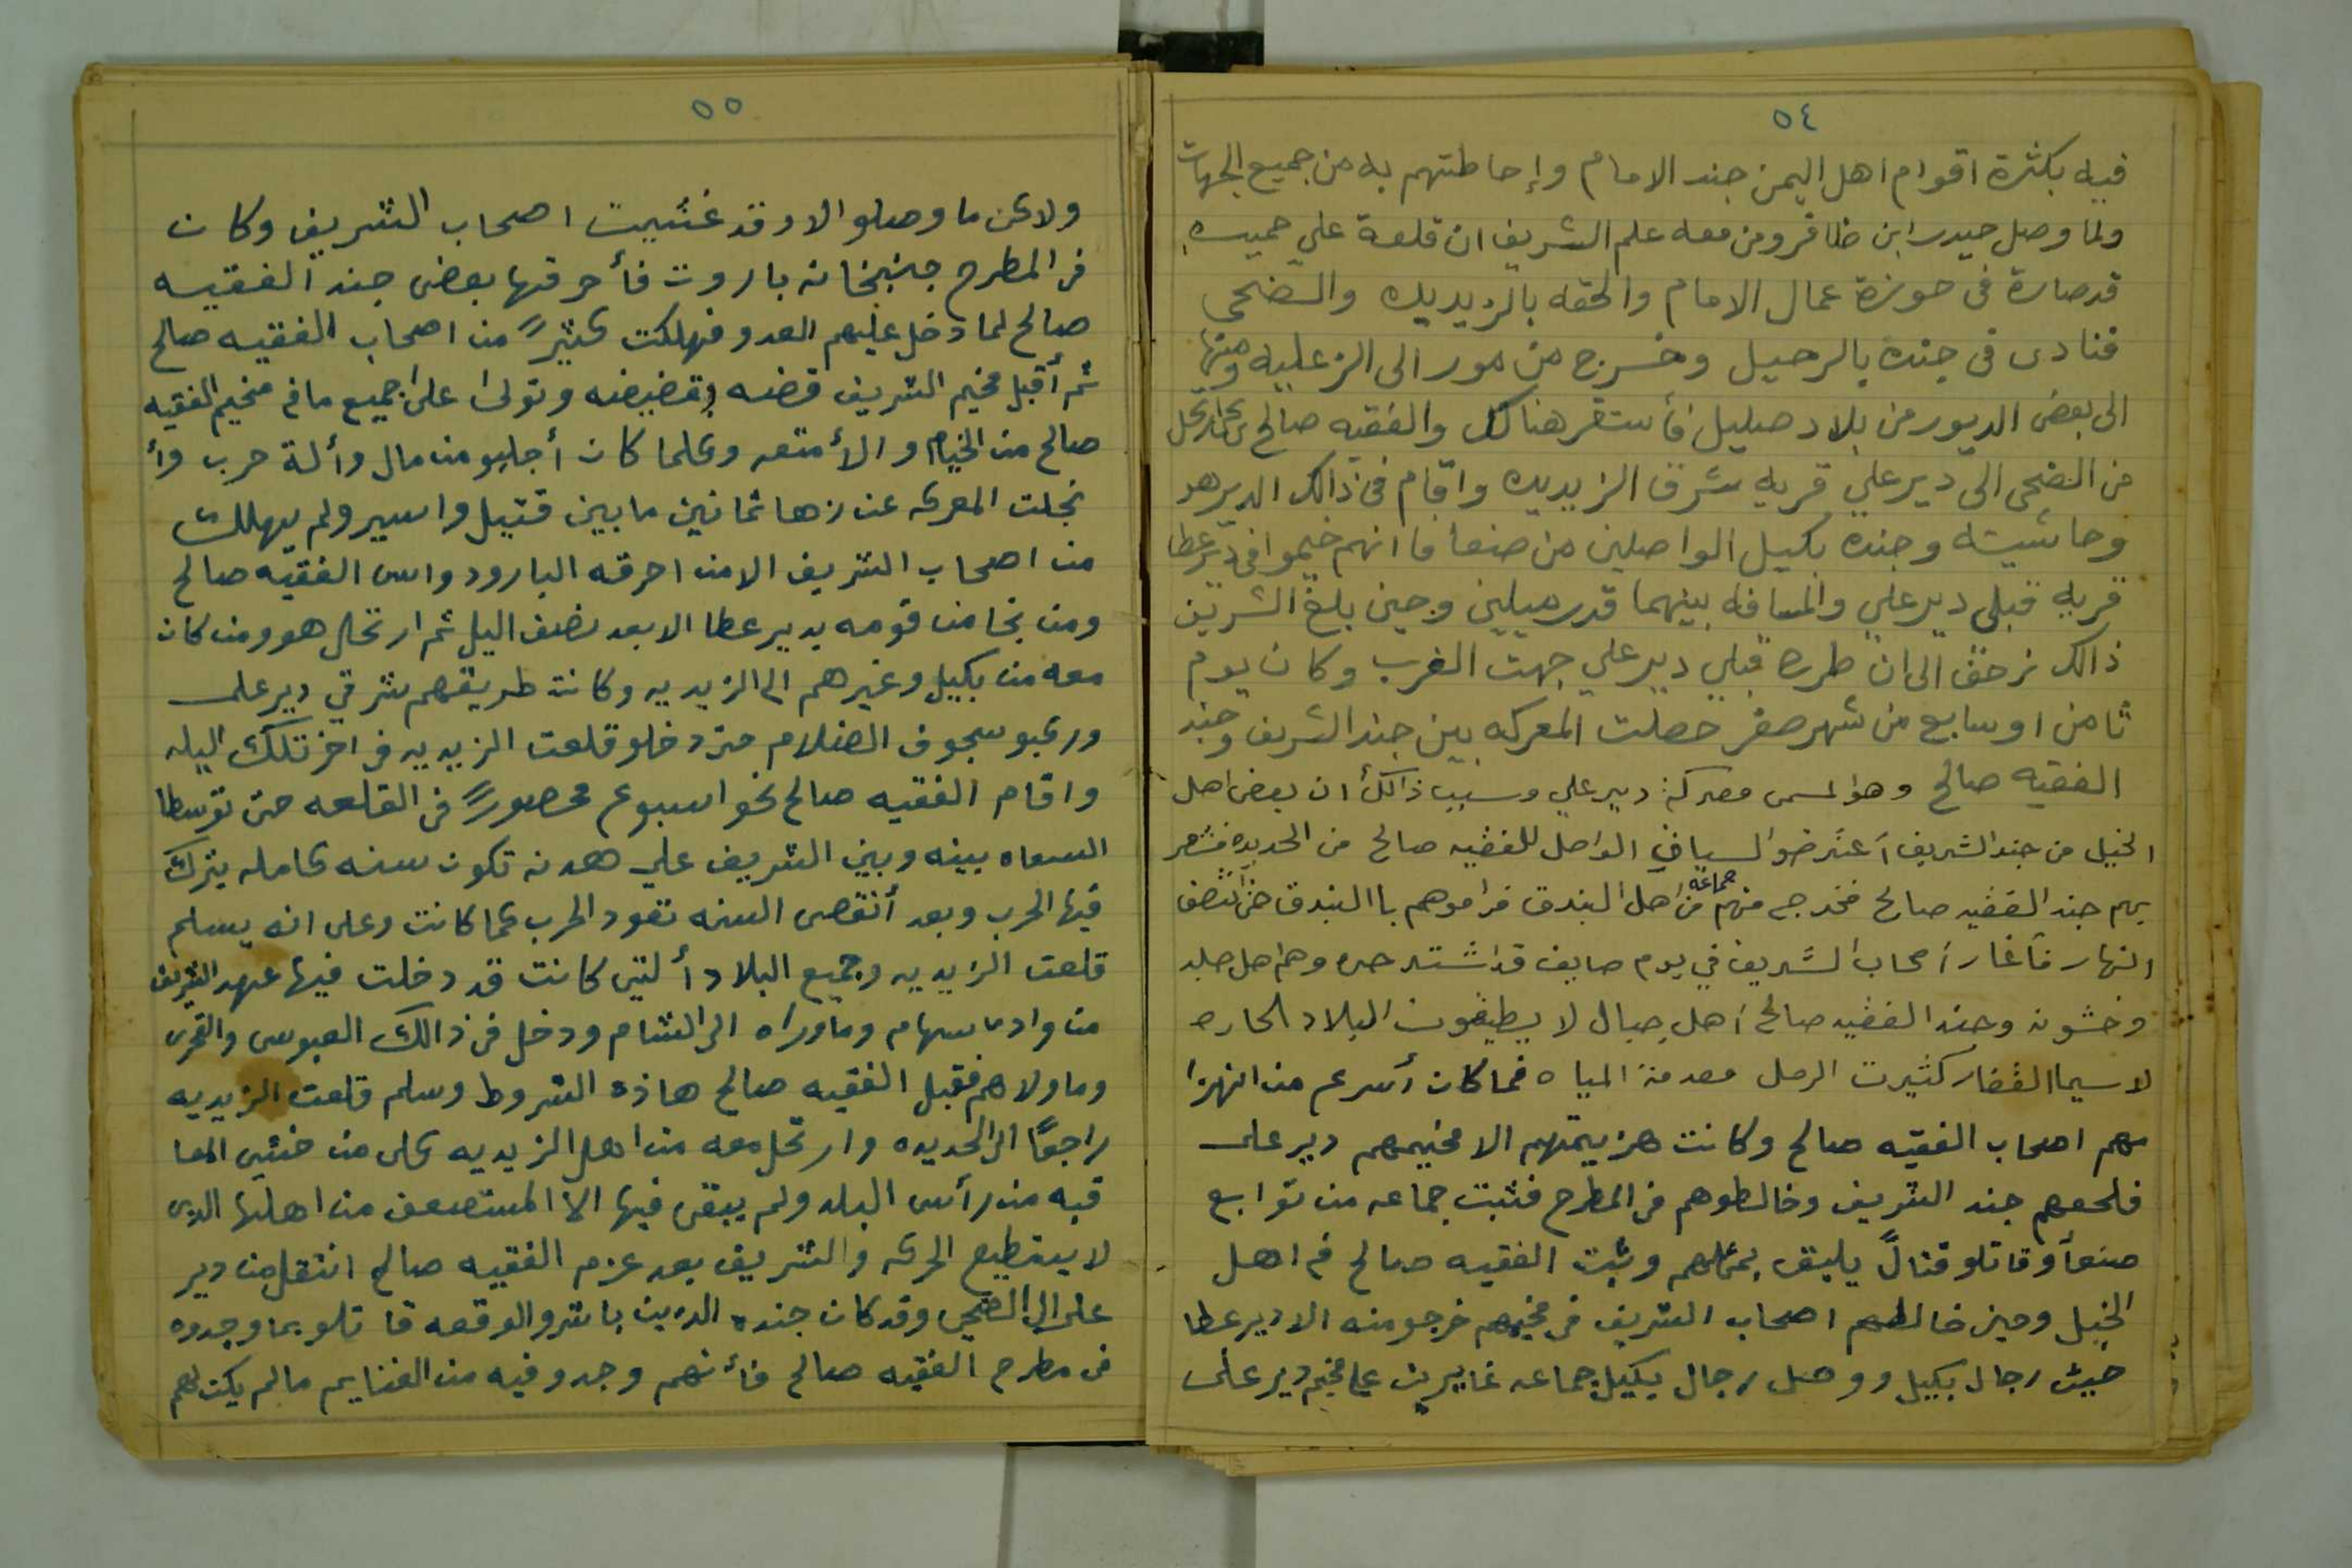 ٥٤
فيه بكثرة اقوام اهل اليمن جند الامام وإحاطتهم به من جميع الجهات
ولما وصل حيدر ابن ظافر ومن معه علم الشريف ان قلعة علي حميده
قد صارة في حوزة عمال الامام والحقه بالزيديه والضحى
فنادى في جنده بالرحيل وخرج من مور الى الزعليه ومنها
الى بعض الديور من بلاد صليل فأستقر هناك والفقيه صالح
من الضحى الى دير علي قريه شرق الزيديه واقام في ذالك الدير هو
وحاشيته وجنده بكيل الواصلين من صنعا فاانهم خيموا في دير عطا
قريه قبلي دير علي والمسافه بينهما قدر ميلين وحين بلغ الشريف
ذالك زحف الى ان طره قبلي دير علي جهت الغرب وكان يوم
ثامن او سابع من شهر صفر حصلت المعركه بين جند الشريف وجند
الفقيه صالح وهو المسمى معركة دير علي وسبب ذالك أن بعض اهل
الخيل من جند الشريف أعترضو السياق الواصل للفقيه صالح من الحديده فشعر
بهم جند الفقيه صالح فخرج منهم جماعة من اهل البندق فراموهم باالبندق حتى انتصف
النهار فأغار أصحاب الشريف في يوم صايف قد اشتد حره وهم اهل جلد
وخشونه وجند الفقيه صالح أهل جبال لا يطيقون البلاد الحاره
لاسيما القفار كثيرت الرمل معدمة المياه فما كان أسرع من انهزا
مهم اصحاب الفقيه صالح وكانت هزيمتهم الا مخيمهم دير على
فلحقهم جند الشريف وخالطوهم في المطرح فثبت جماعه من توابع
صنعأ وقاتلو قتالً يليق بمثلهم وثبت الفقيه صالح في اهل
الخيل وحين خالطهم اصحاب الشريف في مخيمهم خرجو منه الا دير عطا
حيث رجال بكيل ووصل رجال بكيل جماعه غايرين على مخيم دير على
٥٥
ولاكن ما وصلو الا وقد غشيت اصحاب الشريف وكان
في المطرح جبخانه باروت فأحرقها بعض جند الفقيه
صالح لما دخل عليهم العدو فهلكت كثيرً من اصحاب الفقيه صالح
ثم أقبل مخيم الشريف قضه وقضيضه وتولى على جميع ما في مخيم الفقيه
صالح من الخيام والأمتعه وكلما كان أجلبو من مال وألة حرب وأ
نجلت المعركه عن زها ثمانين ما بين قتيل واسير ولم يهلك
من اصحاب الشريف الا من احرقه البارود وامسى الفقيه صالح
ومن نجا من قومه بدير عطا الا بعد نصف اليل ثم ارتحل هو ومن كان
معه من بكيل وغيرهم الى الزيديه وكانت طريقهم شرقي دير على
وركبو سجوف الضلام حتى دخلو قلعت الزيديه في اخر تلك اليله
واقام الفقيه صالح نحو اسبوع محصورً في القلعه حتى توسطا
السعاه بينه وبين الشريف على هدنه تكون سنه كامله يترك
فيها الحرب وبعد أنقضى السنه تعود الحرب كما كانت وعلى انه يسلم
قلعت الزيديه وجميع البلاد ألتي كانت قد دخلت فيها عهد الشريف
من وادى سهام وماوراه الى الشام ودخل في ذالك العبوس والقحرى
وماولاهم فقبل الفقيه صالح هاذه الشروط وسلم قلعت الزيديه
راجعًا الى الحديده وارتحل معه من اهل الزيديه كل من خشي المعا
قبه من رأس البلد ولم يبقى فيها الا المستضعف من اهلها الدى
لا يستطيع الحركه والشريف بعد عزم الفقيه صالح انتقل من دير
على الى الضحى وقد كان جنده الذين باشرو الوقعه قاتلو بما وجدوه
في مطرح الفقيه صالح فأنهم وجدو فيه من الغنايم مالم يكن لهم